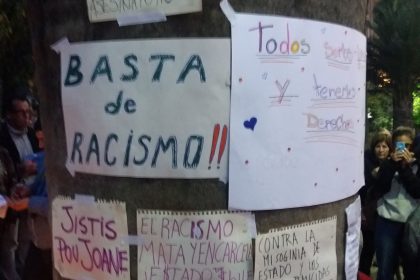 ASESINATO
BASTA
de
RACISMO!!
Todos
y tenemos
Derecho
JISTIS
POU JOANE
EL RACISMO
MATA Y ENCARCE
¡ESTADO
CONTRA LA
MISOGINIA DE
ESTADO